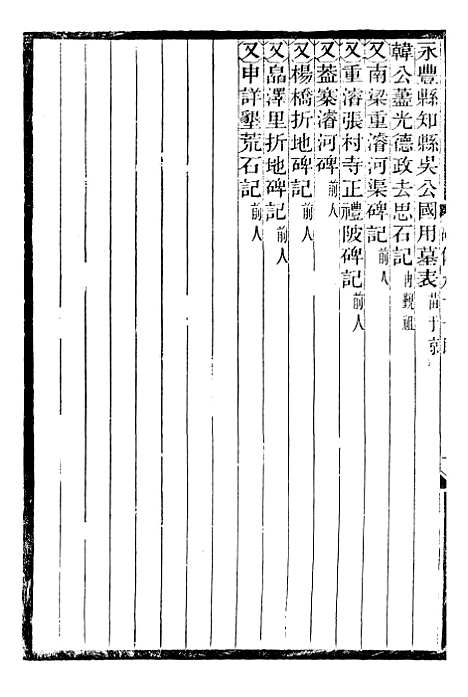 永豐縣知縣吳公國用墓表
韓公藎光德政去思石記 冉覲祖
又南梁重濬河渠碑記 前人
又重濬張村寺正禮陂碑記 前人
又葢寨濬河碑 前人
又楊橋折地碑記 前人
又畠澤里折地碑記 前人
又申詳墾荒石記 前人